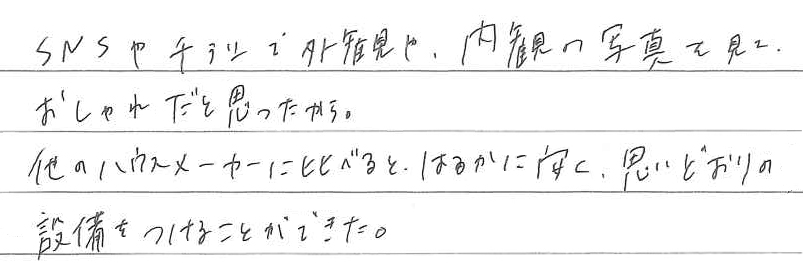 SNSやチラシで外観や、内観の写真を見て、
おしゃれだと思ったから。
他のハウスメーカーに比べると、はるかに安く、思いどおりの
設備をつけることができた。